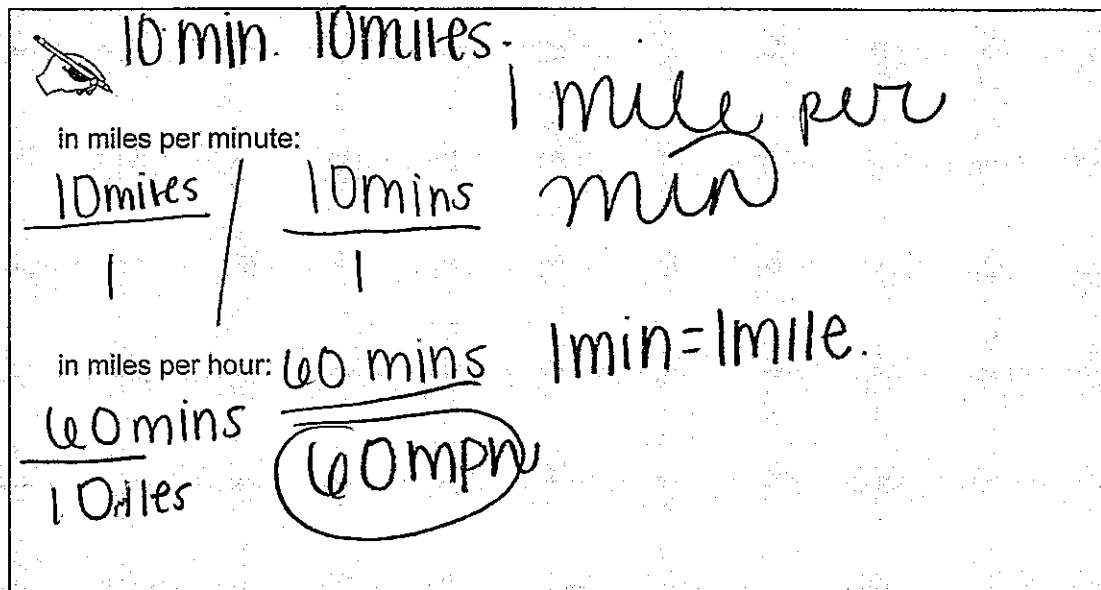 10 min. 10miles.
1 mile per
min
in miles per minute:
10miles / 10mins
1 1
in miles per hour: 60 mins
1min=1mile.
60mins
60mph
10miles